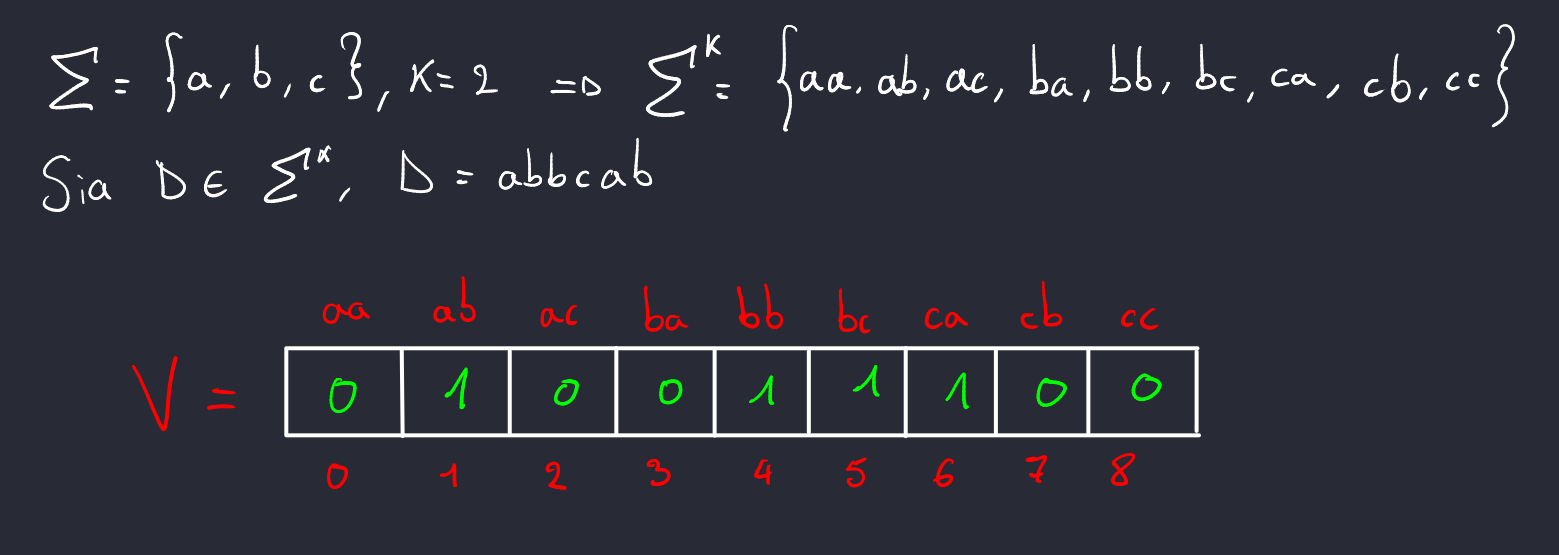 Σ = {a, b, c}, K = 2 => Σ^K = {aa, ab, ac, ba, bb, bc, ca, cb, cc}
Sia D ∈ Σ*, D = abbcab
aa ab ac ba bb bc ca cb cc
V = 0 1 0 0 1 1 1 0 0
0 1 2 3 4 5 6 7 8